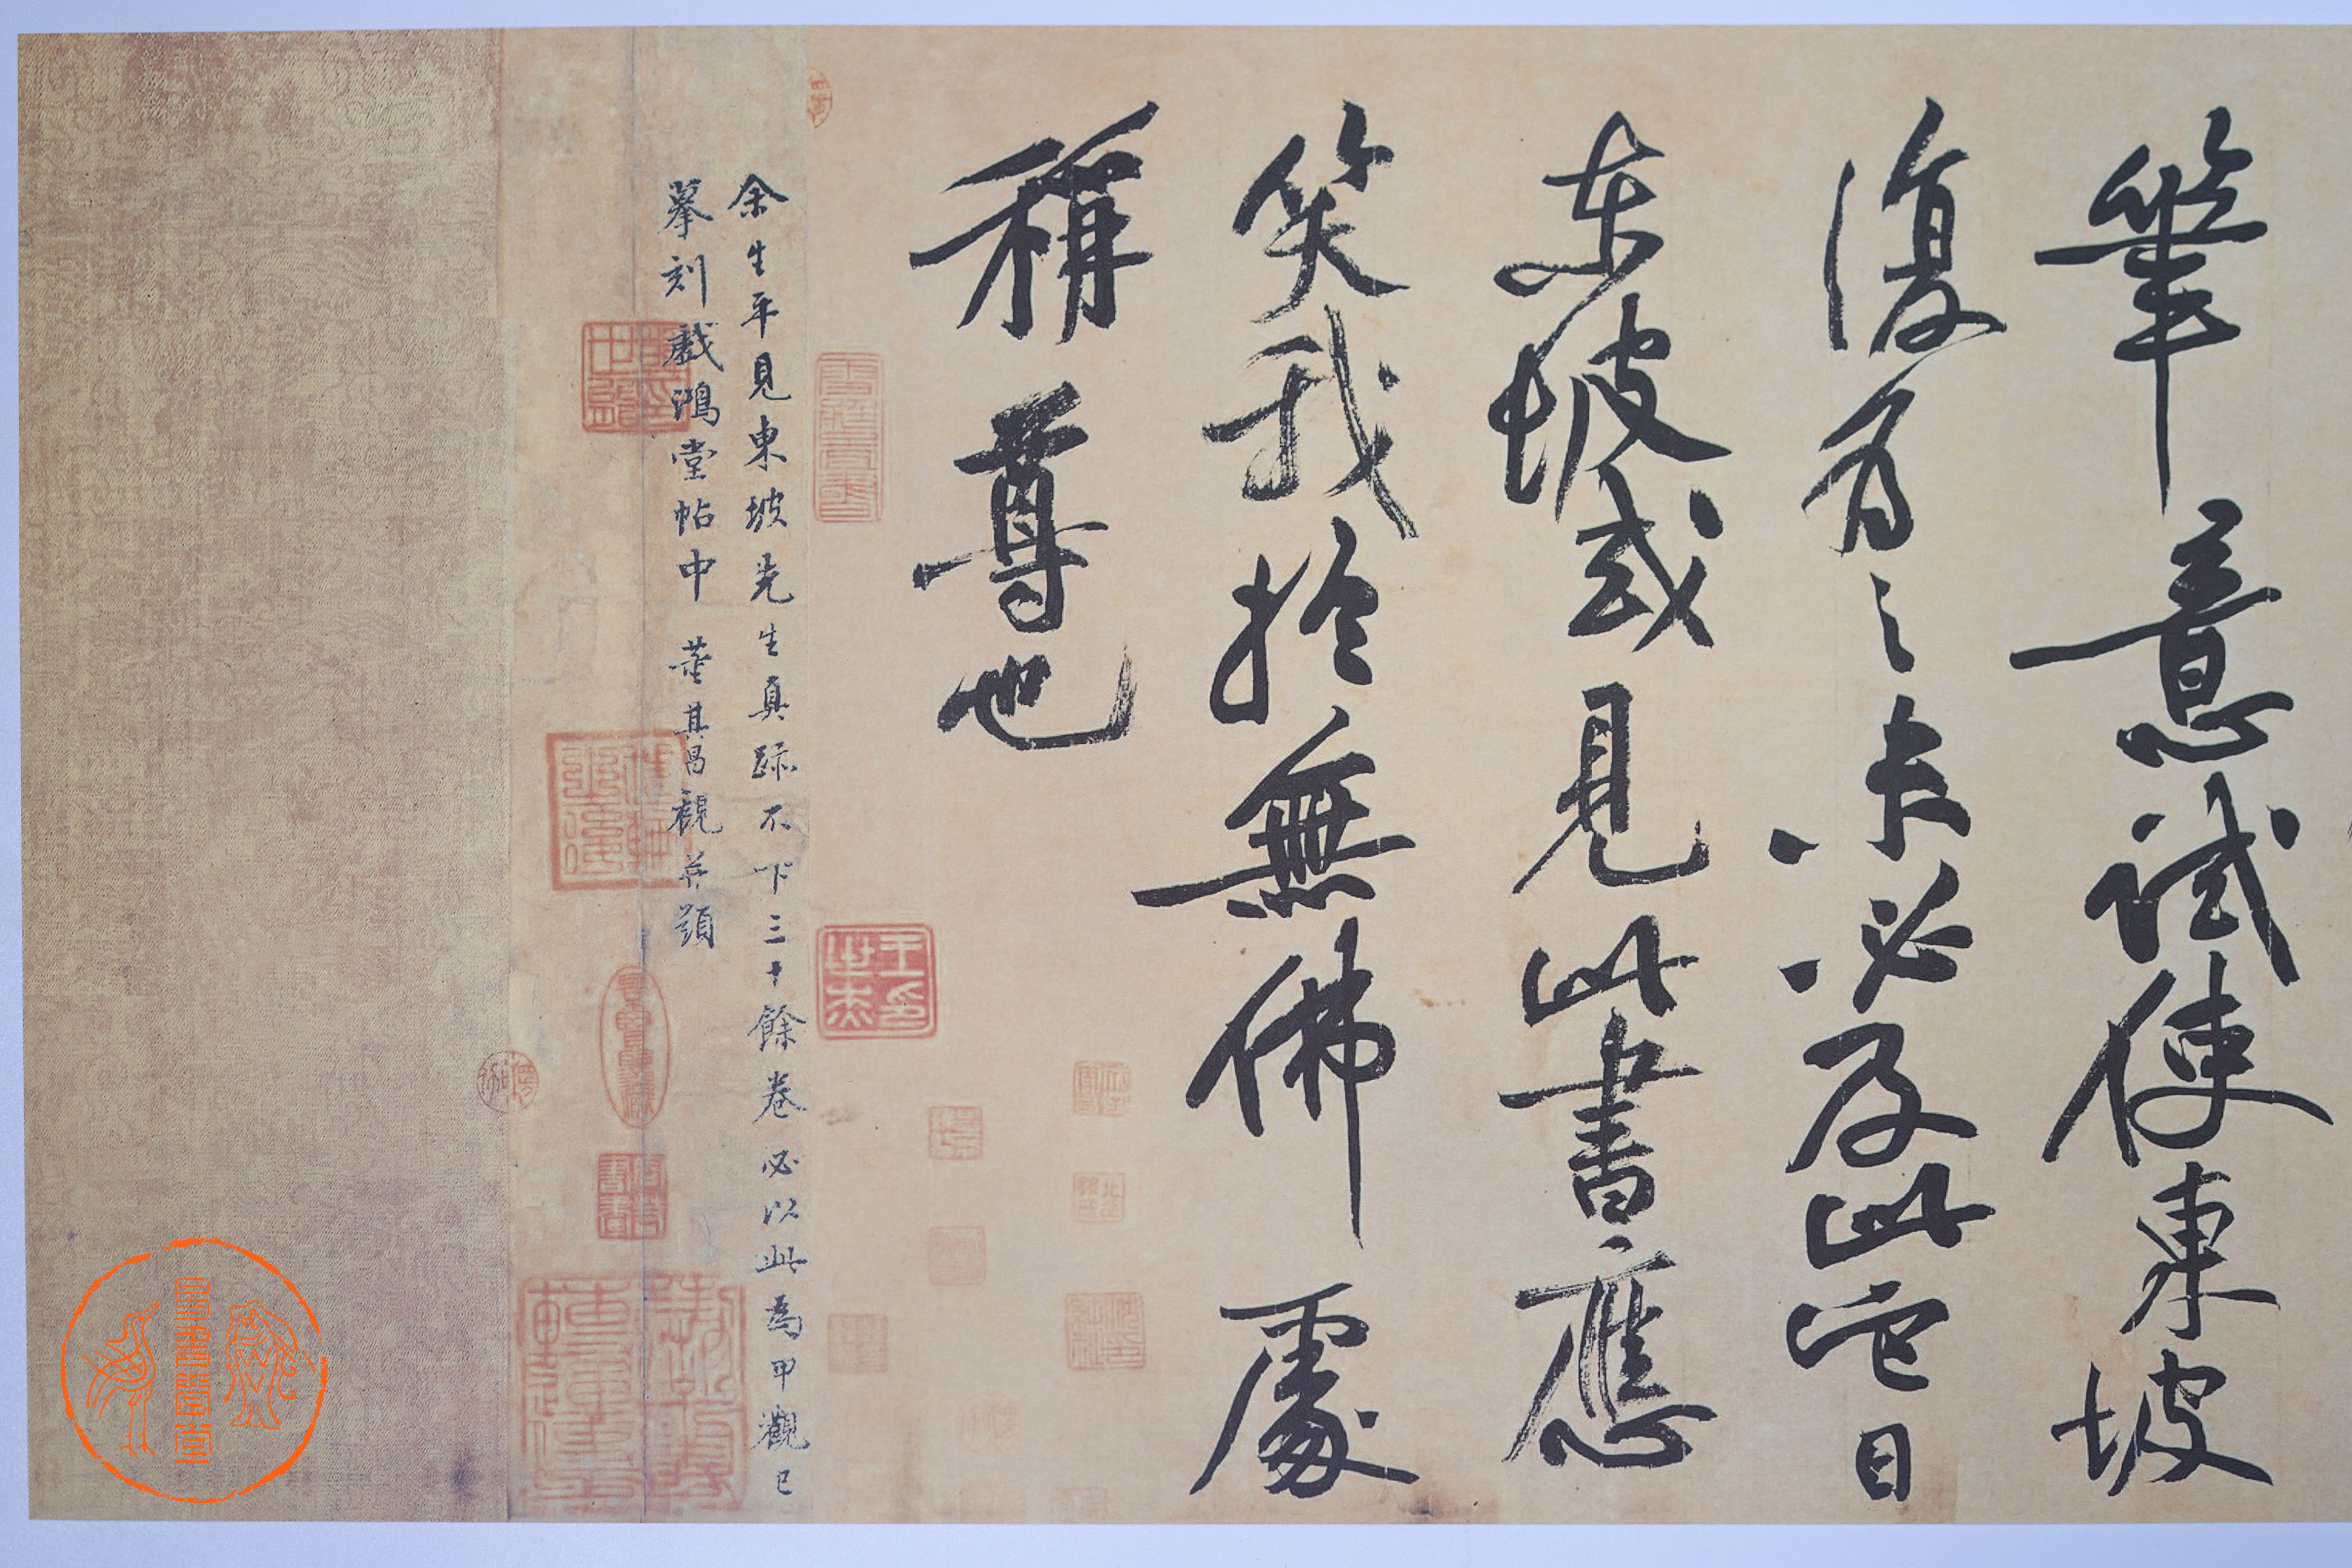 筆意試使東坡
復為之未必及此它日
東坡或見此書應
笑我於無佛處
稱尊也
余生平見東坡先生真跡不下三十餘卷必以此為甲觀已
摹刻戲鴻堂帖中 董其昌觀并題
王印之杰